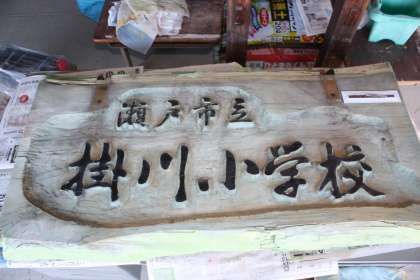 瀬戸市立
掛川小学校